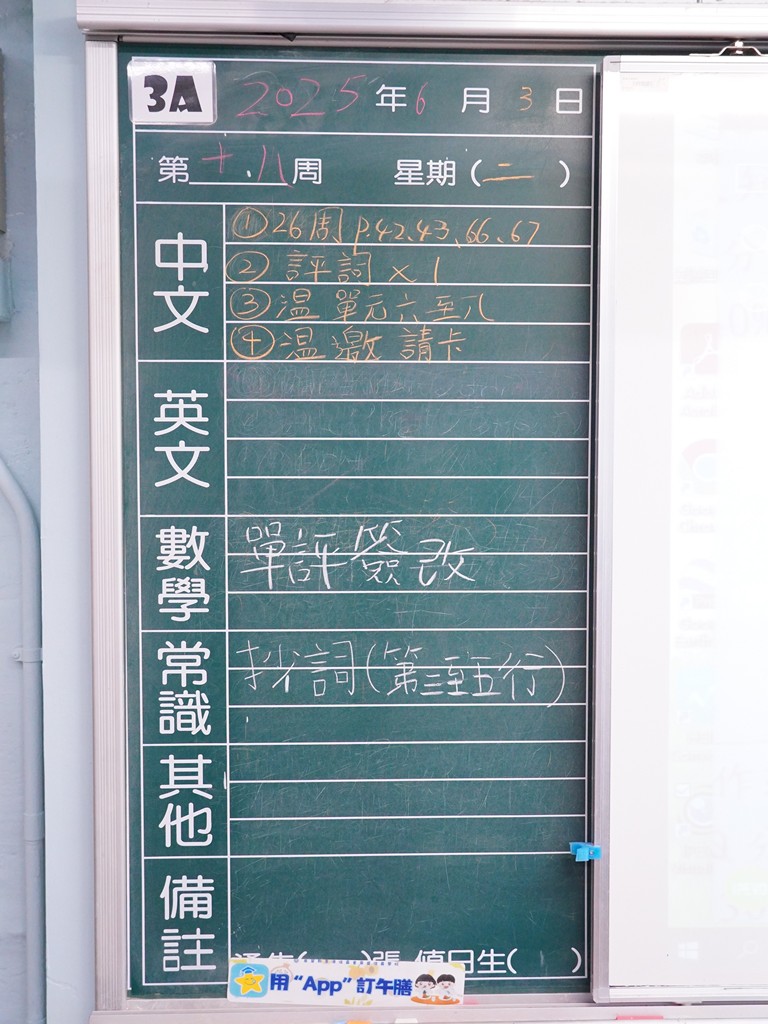 3A 2025年6月3日
第十八周 星期(二)
中文
①26周 p.42.43、66、67
②評詞 x 1
③溫單元六至八
④溫邀請卡
英文
數學
單評簽改
常識
抄詞(第三至五行)
其他
備註
張 值日生( )
用“App”訂午膳